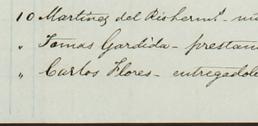 10 Martinez del Rio herms. -
" Tomas Gardida - prestam
" Carlos Flores - entregadole